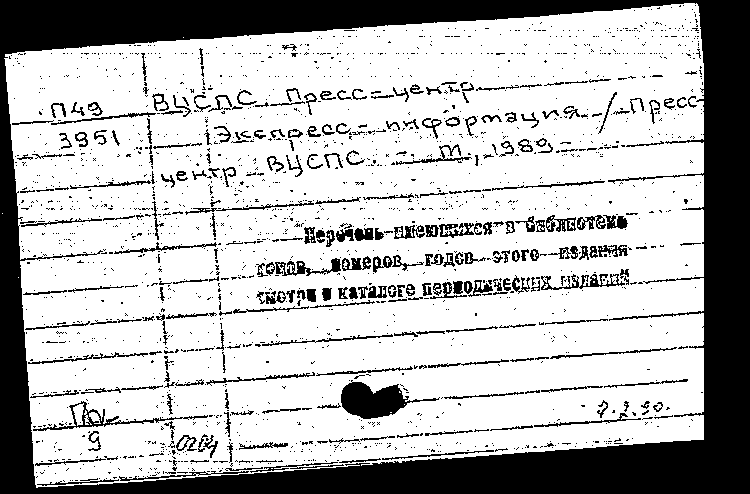 П49 ВЦСПС Пресс-центр.
3951 Экспресс-информация / Пресс-
центр ВЦСПС. - М, 1989-
Перечень имеющихся в библиотеке
томов, номеров, годов этого издания
смотри в каталоге периодических изданий
9 0204
7.2.90.